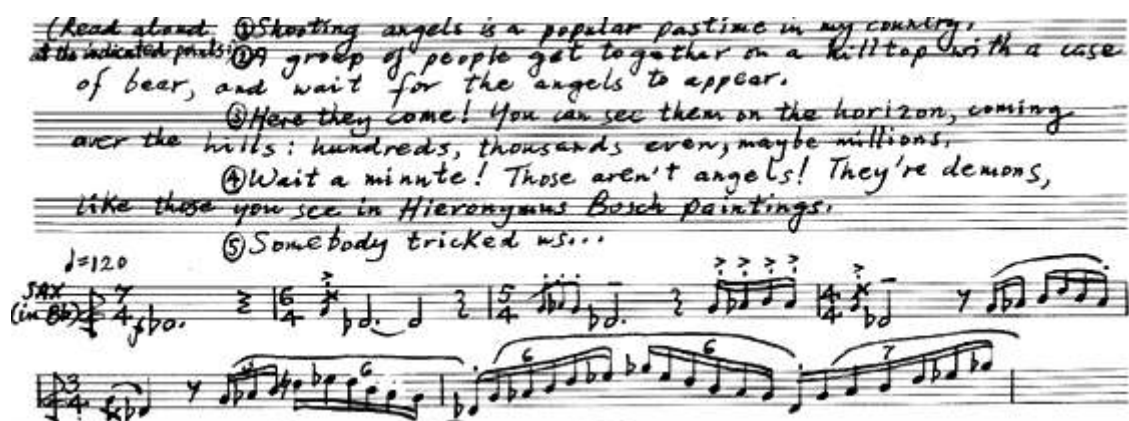 (Read aloud ①Shooting angels is a popular pastime in my country.
at the indicated points: ②A group of people get together on a hilltop with a case
of bear, and wait for the angels to appear.
③Here they come! You can see them on the horizon, coming
over the hills: hundreds, thousands even, maybe millions.
④Wait a minute! Those aren't angels! They're demons,
like those you see in Hieronymus Bosch paintings.
⑤Somebody tricked us...
♩=120
SAX
(in Bb)
7 4 6 4 5 4 4 4
3 4 6 6 6 7